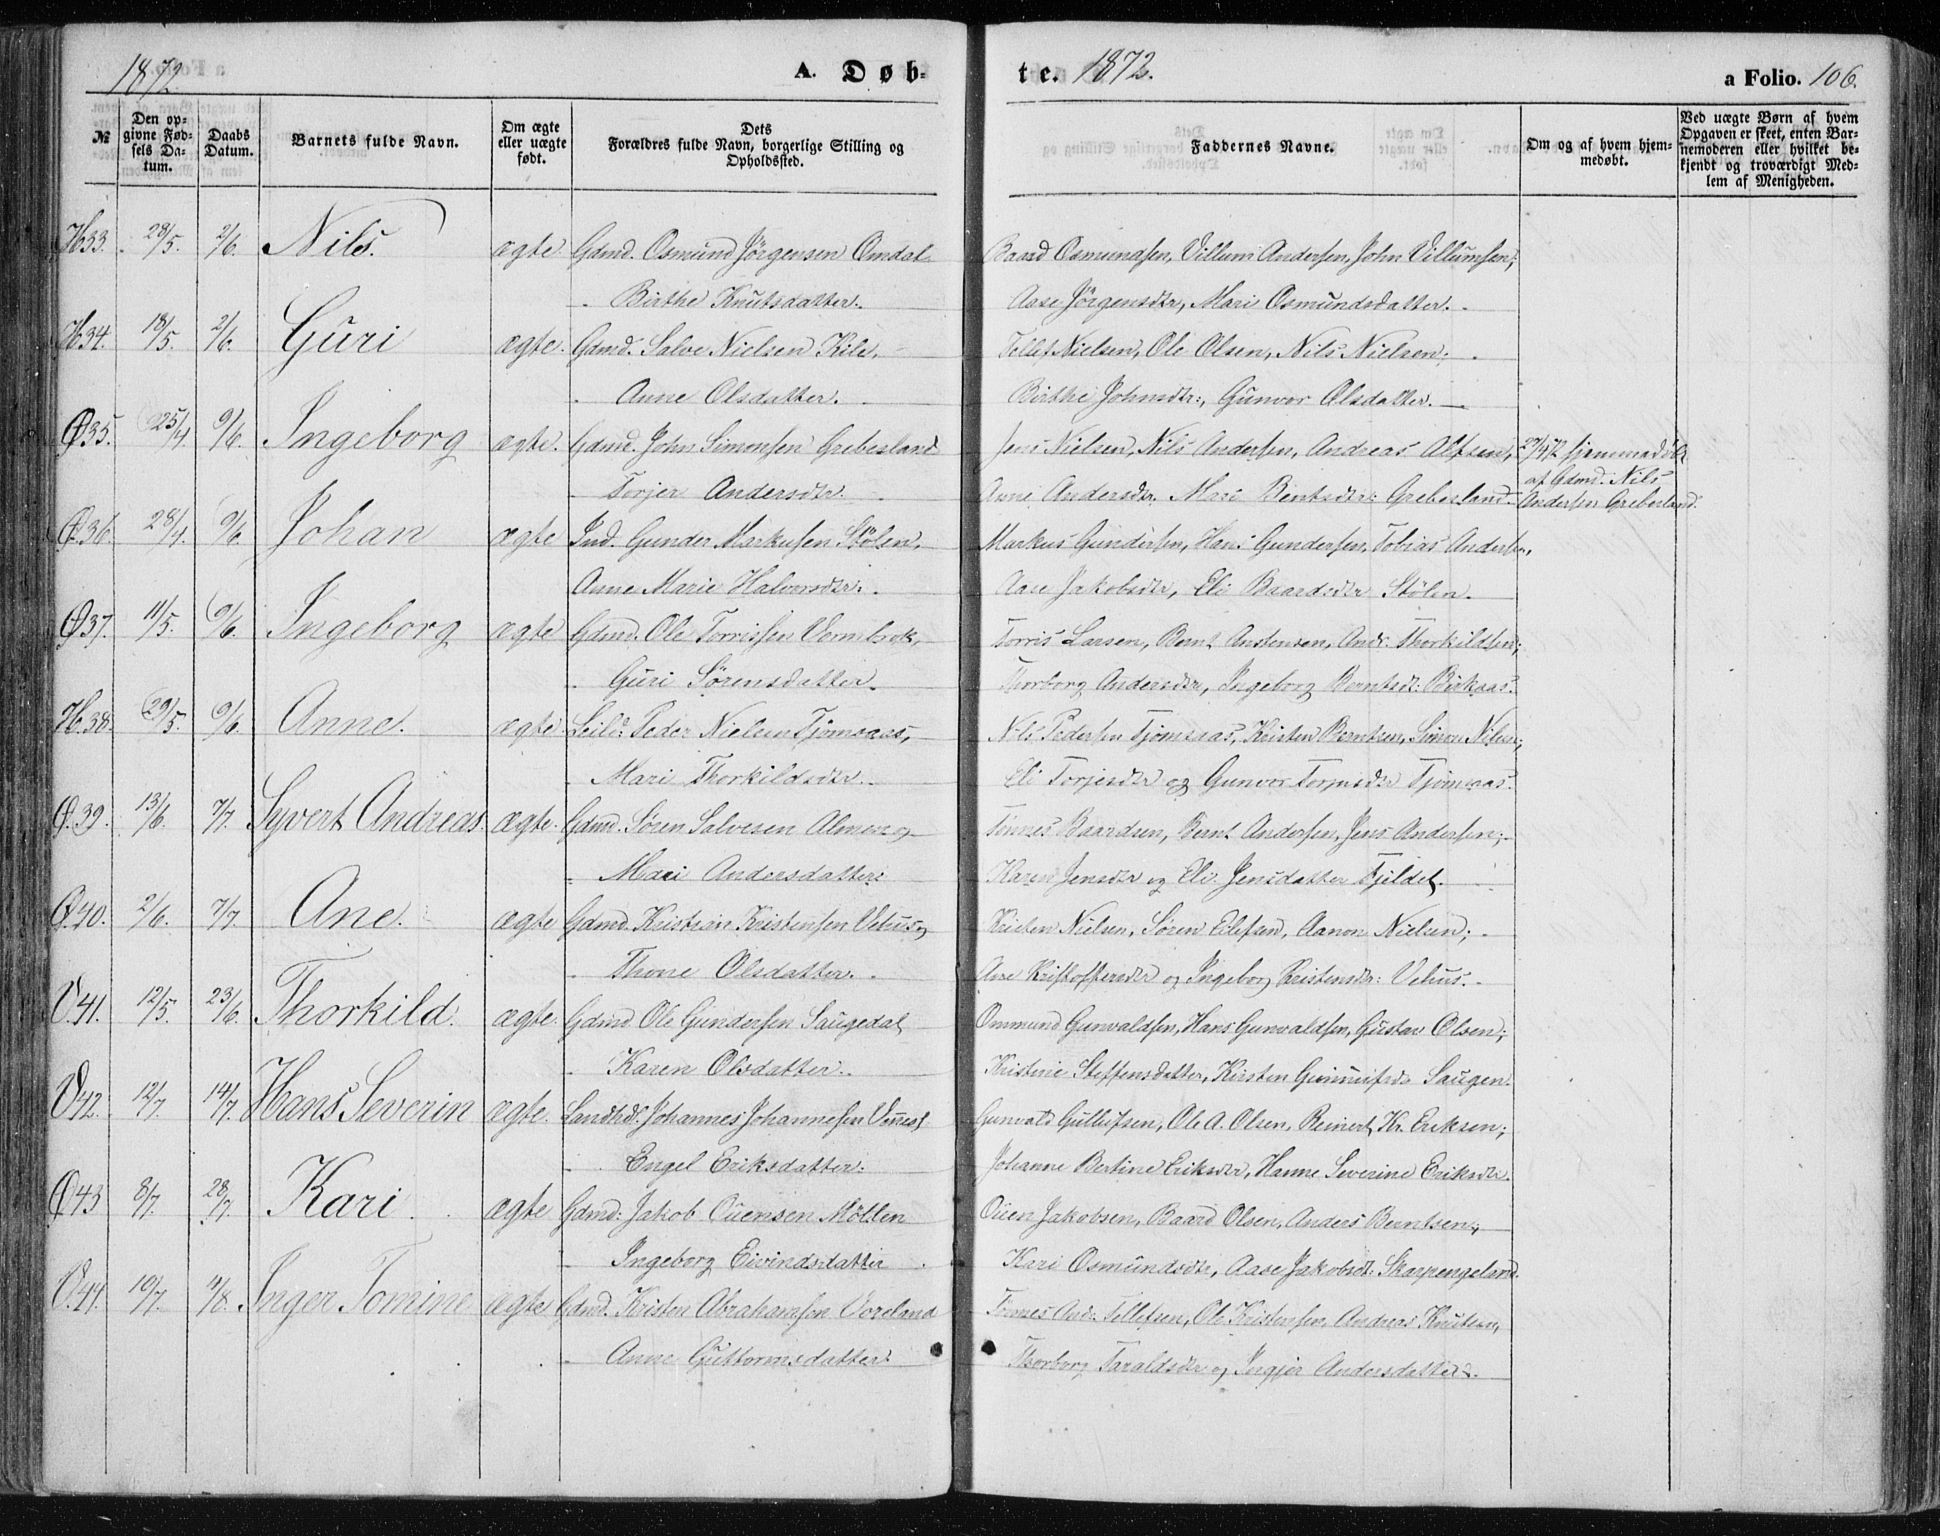 1872. A. Døb- te. 1872. a Folio. 106.
№ Den opgivne Fødsels Datum. Daabs Datum. Barnets fulde Navn. Om ægte eller uægte født. Dets Forældres fulde Navn, borgerlige Stilling og Opholdssted. Faddernes Navne. Om og af hvem hjemmedøbt. Ved uægte Børn af hvem Opgaven er skeet, enten Barnemoderen eller hvilket bekjendt og troværdigt Medlem af Menigheden.
H33. 28/5. 2/6. Nils. ægte. Gdmd. Osmund Jörgensen Omdal Baard Osmundsen, Villum Andersen, John Villumsen;
Birthe Knutsdatter. Aase Jörgensdtr, Mari Osmundsdatter.
H34. 18/5. 2/6. Guri ægte. Gdmd. Salve Nielsen Kile. Tellef Nielsen, Ole Olsen, Nils Nielsen;
Anne Olsdatter. Birthe Johnsdtr:, Gunvor Olsdatter.
Ø35. 25/4. 9/6. Ingeborg ægte. Gdmd. John Simonsen Grebesland Jens Nielsen, Nils Andersen, Andreas Alfsen, 27/4 72 hjemmedøbt
af Gdmd. Nils
Torjer Andersdtr. Anne Andersdtr. Mari Bentsdtr: Grebesland. Andersen Grebesland.
Ø36. 28/4. 9/6. Johan ægte Ind. Gunder Markusen Stölen. Markus Gundersen, Hans Gundersen, Tobias Andersen,
Anne Marie Halvorsdtr. Aase Jakobsdtr, Eli Baardsdtr Stölen.
Ø37. 11/5. 9/6. Ingeborg ægte Gdmd. Ole Torrissen Vernebrok, Torris Larsen, Bernt Anstensen, Andr. Thorkildsen;
Guri Sörensdatter. Thorborg Andersdtr, Ingeborg Berntsdt: Birkaas.
H.38. 29/5. 9/6. Anne. ægte. Leild: Peder Nielsen Tjömsaas, Nils Pedersen Tjömsaas, Kristen Berntsen, Simon Nilsen;
Mari Thorkildsdtr. Eli Torjesdtr og Gunvor Torjusdtr Tjömsaas.
Ø.39. 13/6. 7/7. Syvert Andreas. ægte. Gdmd. Sören Salvesen Almen og Tönnes Baardsen, Bernt Andersen, Jens Andersen;
Mari Andersdatter: Karen Jensdtr og Eli Jensdatter Fjeldet.
Ø.40. 2/6. 7/7. Ane. ægte Gdmd. Kristian Kristensen Vehus og Kristen Nielsen, Sören Eilefsen, Aanon Nielsen;
Thone Olsdatter. Ane Kristoffersdtr og Ingeborg Kristensdtr: Vehus.
V.41. 12/5. 23/6. Thorkild. ægte. Gdmd Ole Gundersen Saugedal, Ommund Gunvaldsen, Hans Gunvaldsen, Gustav Olsen;
Karen Olsdatter. Kristine Steffensdatter, Kirsten Saugen.
V42. 12/7. 14/7. Hans Severin ægte. Landhdl. Johannes Johannesen Gunvald Gullufsen, Ole A. Olsen, Reinert Kr. Eriksen;
Engel Eriksdatter. Johanne Bertine Eriksdtr, Hanne Severine Eriksdtr.
Ø43 8/7. 28/7. Kari. ægte Gdmd: Jakob Ouensen Möllen Ouen Jakobsen, Baard Olsen, Anders Berntsen;
Ingeborg Eivindsdatter. Kari Osmundsdtr, Aase Jakobsdt: Skarpengeland.
V.44. 10/7. 4/8. Inger Tomine ægte Gdmd. Kristen Abrahamsen Voreland Tönnes Andr. Tellefsen, Ole Kristensen, Andreas Knutsen,
Anne Guttormsdatter. Thorborg Taraldsdtr og Ingjer Andersdatter.